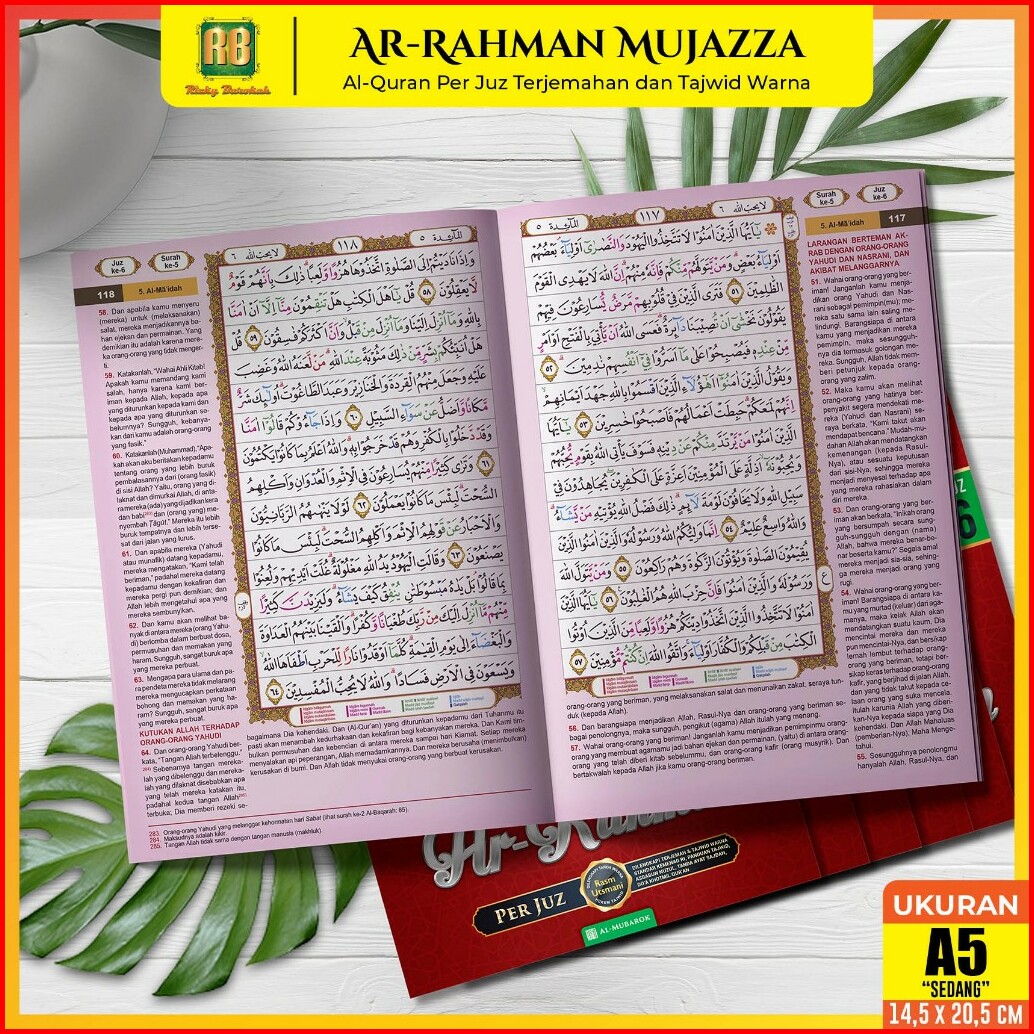 RB
Rizky Barokah
AR-RAHMAN MUJAZZA
Al-Quran Per Juz Terjemahan dan Tajwid Warna
Juz
ke-6
Surah
ke-5
لا يحب الله ٦
١١٨
المآئدة ٥
118
5. Al-Mā'idah
58. Dan apabila kamu menyeru
(mereka) untuk (melaksanakan)
salat, mereka menjadikannya ba-
han ejekan dan permainan. Yang
demikian itu adalah karena mere-
ka orang-orang yang tidak menger-
ti.
59. Katakanlah, "Wahai Ahli Kitab!
Apakah kamu memandang kami
salah, hanya karena kami ber-
iman kepada Allah, kepada apa
yang diturunkan kepada kami dan
kepada apa yang diturunkan se-
belumnya? Sungguh, kebanya-
kan dari kamu adalah orang-orang
yang fasik."
60. Katakanlah (Muhammad), "Apa-
kah akan aku beritakan kepadamu
tentang orang yang lebih buruk
pembalasannya dari (orang fasik)
di sisi Allah? Yaitu, orang yang di-
laknat dan dimurkai Allah, di anta-
ra mereka (ada) yang dijadikan kera
dan babi dan (orang yang) me-
nyembah Ṭāgūt." Mereka itu lebih
buruk tempatnya dan lebih terse-
sat dari jalan yang lurus.
61. Dan apabila mereka (Yahudi
atau munafik) datang kepadamu,
mereka mengatakan, "Kami telah
beriman," padahal mereka datang
kepadamu dengan kekafiran dan
mereka pergi pun demikian; dan
Allah lebih mengetahui apa yang
mereka sembunyikan.
62. Dan kamu akan melihat ba-
nyak di antara mereka (orang Yahu-
di) berlomba dalam berbuat dosa,
permusuhan dan memakan yang
haram. Sungguh, sangat buruk apa
yang mereka perbuat.
63. Mengapa para ulama dan pa-
ra pendeta mereka tidak melarang
mereka mengucapkan perkataan
bohong dan memakan yang ha-
ram? Sungguh, sangat buruk apa
yang mereka perbuat.
KUTUKAN ALLAH TERHADAP
ORANG-ORANG YAHUDI
64. Dan orang-orang Yahudi ber-
kata, "Tangan Allah terbelenggu."
Sebenarnya tangan mereka-
lah yang dibelenggu dan mereka-
lah yang dilaknat disebabkan apa
yang telah mereka katakan itu,
padahal kedua tangan Allah
terbuka; Dia memberi rezeki se-
وَإِذَا نَادَيْتُمْ إِلَى الصَّلٰوةِ اتَّخَذُوْهَا هُزُوًا وَّلَعِبًا ذٰلِكَ بِاَنَّهُمْ قَوْمٌ
لَّا يَعْقِلُوْنَ ٥٨ قُلْ يٰٓاَهْلَ الْكِتٰبِ هَلْ تَنْقِمُوْنَ مِنَّآ اِلَّآ اَنْ اٰمَنَّا
بِاللّٰهِ وَمَآ اُنْزِلَ اِلَيْنَا وَمَآ اُنْزِلَ مِنْ قَبْلُ وَاَنَّ اَكْثَرَكُمْ فٰسِقُوْنَ ٥٩ قُلْ
هَلْ اُنَبِّئُكُمْ بِشَرٍّ مِّنْ ذٰلِكَ مَثُوْبَةً عِنْدَ اللّٰهِ مَنْ لَّعَنَهُ اللّٰهُ وَغَضِبَ
عَلَيْهِ وَجَعَلَ مِنْهُمُ الْقِرَدَةَ وَالْخَنَازِيْرَ وَعَبَدَ الطَّاغُوْتَ اُولٰۤىِٕكَ شَرٌّ
مَّكَانًا وَّاَضَلُّ عَنْ سَوَاۤءِ السَّبِيْلِ ٦٠ وَاِذَا جَاۤءُوْكُمْ قَالُوْٓا اٰمَنَّا
وَقَدْ دَّخَلُوْا بِالْكُفْرِ وَهُمْ قَدْ خَرَجُوْا بِهٖ وَاللّٰهُ اَعْلَمُ بِمَا كَانُوْا يَكْتُمُوْنَ
٦١ وَتَرٰى كَثِيْرًا مِّنْهُمْ يُسَارِعُوْنَ فِى الْاِثْمِ وَالْعُدْوَانِ وَاَكْلِهِمُ
السُّحْتَ لَبِئْسَ مَا كَانُوْا يَعْمَلُوْنَ ٦٢ لَوْلَا يَنْهٰىهُمُ الرَّبَّانِيُّوْنَ
وَالْاَحْبَارُ عَنْ قَوْلِهِمُ الْاِثْمَ وَاَكْلِهِمُ السُّحْتَ لَبِئْسَ مَا كَانُوْا
يَصْنَعُوْنَ ٦٣ وَقَالَتِ الْيَهُوْدُ يَدُ اللّٰهِ مَغْلُوْلَةٌ غُلَّتْ اَيْدِيْهِمْ وَلُعِنُوْا
بِمَا قَالُوْا بَلْ يَدٰهُ مَبْسُوْطَتٰنِ يُنْفِقُ كَيْفَ يَشَاۤءُ وَلَيَزِيْدَنَّ كَثِيْرًا
مِّنْهُمْ مَّآ اُنْزِلَ اِلَيْكَ مِنْ رَّبِّكَ طُغْيَانًا وَّكُفْرًا وَاَلْقَيْنَا بَيْنَهُمُ الْعَدَاوَةَ
وَالْبَغْضَاۤءَ اِلٰى يَوْمِ الْقِيٰمَةِ كُلَّمَآ اَوْقَدُوْا نَارًا لِّلْحَرْبِ اَطْفَاَهَا اللّٰهُ
وَيَسْعَوْنَ فِى الْاَرْضِ فَسَادًا وَاللّٰهُ لَا يُحِبُّ الْمُفْسِدِيْنَ ٦٤
bagaimana Dia kehendaki. Dan (Al-Qur'an) yang diturunkan kepadamu dari Tuhanmu itu
pasti akan menambah kedurhakaan dan kekafiran bagi kebanyakan mereka. Dan Kami tim-
bulkan permusuhan dan kebencian di antara mereka sampai hari Kiamat. Setiap mereka
menyalakan api peperangan, Allah memadamkannya. Dan mereka berusaha (menimbulkan)
kerusakan di bumi. Dan Allah tidak menyukai orang-orang yang berbuat kerusakan.
283. Orang-orang Yahudi yang melanggar kehormatan hari Sabat (lihat surah ke-2 Al-Baqarah: 65).
284. Maksudnya adalah kikir.
285. Tangan Allah tidak sama dengan tangan manusia (makhluk).
المآئدة ٥
١١٧
لا يحب الله ٦
Surah
ke-5
Juz
ke-6
5. Al-Mā'idah
117
يٰٓاَيُّهَا الَّذِيْنَ اٰمَنُوْا لَا تَتَّخِذُوا الْيَهُوْدَ وَالنَّصٰرٰٓى اَوْلِيَاۤءَ بَعْضُهُمْ
اَوْلِيَاۤءُ بَعْضٍ وَمَنْ يَّتَوَلَّهُمْ مِّنْكُمْ فَاِنَّهٗ مِنْهُمْ اِنَّ اللّٰهَ لَا يَهْدِى الْقَوْمَ
الظّٰلِمِيْنَ ٥١ فَتَرَى الَّذِيْنَ فِيْ قُلُوْبِهِمْ مَّرَضٌ يُّسَارِعُوْنَ فِيْهِمْ
يَقُوْلُوْنَ نَخْشٰٓى اَنْ تُصِيْبَنَا دَاۤىِٕرَةٌ فَعَسَى اللّٰهُ اَنْ يَّأْتِيَ بِالْفَتْحِ اَوْ اَمْرٍ
مِّنْ عِنْدِهٖ فَيُصْبِحُوْا عَلٰى مَآ اَسَرُّوْا فِيْٓ اَنْفُسِهِمْ نٰدِمِيْنَ ٥٢
وَيَقُوْلُ الَّذِيْنَ اٰمَنُوْٓا اَهٰٓؤُلَاۤءِ الَّذِيْنَ اَقْسَمُوْا بِاللّٰهِ جَهْدَ اَيْمَانِهِمْ
اِنَّهُمْ لَمَعَكُمْ حَبِطَتْ اَعْمَالُهُمْ فَاَصْبَحُوْا خٰسِرِيْنَ ٥٣ يٰٓاَيُّهَا
الَّذِيْنَ اٰمَنُوْا مَنْ يَّرْتَدَّ مِنْكُمْ عَنْ دِيْنِهٖ فَسَوْفَ يَأْتِى اللّٰهُ بِقَوْمٍ يُّحِبُّهُمْ
وَيُحِبُّوْنَهٗٓ اَذِلَّةٍ عَلَى الْمُؤْمِنِيْنَ اَعِزَّةٍ عَلَى الْكٰفِرِيْنَ يُجَاهِدُوْنَ فِيْ
سَبِيْلِ اللّٰهِ وَلَا يَخَافُوْنَ لَوْمَةَ لَاۤىِٕمٍ ذٰلِكَ فَضْلُ اللّٰهِ يُؤْتِيْهِ مَنْ يَّشَاۤءُ
وَاللّٰهُ وَاسِعٌ عَلِيْمٌ ٥٤ اِنَّمَا وَلِيُّكُمُ اللّٰهُ وَرَسُوْلُهٗ وَالَّذِيْنَ اٰمَنُوا الَّذِيْنَ
يُقِيْمُوْنَ الصَّلٰوةَ وَيُؤْتُوْنَ الزَّكٰوةَ وَهُمْ رٰكِعُوْنَ ٥٥ وَمَنْ يَّتَوَلَّ اللّٰهَ
وَرَسُوْلَهٗ وَالَّذِيْنَ اٰمَنُوْا فَاِنَّ حِزْبَ اللّٰهِ هُمُ الْغٰلِبُوْنَ ٥٦ يٰٓاَيُّهَا الَّذِيْنَ
اٰمَنُوْا لَا تَتَّخِذُوا الَّذِيْنَ اتَّخَذُوْا دِيْنَكُمْ هُزُوًا وَّلَعِبًا مِّنَ الَّذِيْنَ اُوْتُوا
الْكِتٰبَ مِنْ قَبْلِكُمْ وَالْكُفَّارَ اَوْلِيَاۤءَ وَاتَّقُوا اللّٰهَ اِنْ كُنْتُمْ مُّؤْمِنِيْنَ ٥٧
LARANGAN BERTEMAN AK-
RAB DENGAN ORANG-ORANG
YAHUDI DAN NASRANI, DAN
AKIBAT MELANGGARNYA
51. Wahai orang-orang yang ber-
iman! Janganlah kamu menja-
dikan orang Yahudi dan Nas-
rani sebagai pemimpin(mu); me-
reka satu sama lain saling me-
lindungi. Barangsiapa di antara
kamu yang menjadikan mereka
pemimpin, maka sesungguh-
nya dia termasuk golongan me-
reka. Sungguh, Allah tidak mem-
beri petunjuk kepada orang-
orang yang zalim.
52. Maka kamu akan melihat
orang-orang yang hatinya ber-
penyakit segera mendekati me-
reka (Yahudi dan Nasrani) se-
raya berkata, "Kami takut akan
mendapat bencana." Mudah-mu-
dahan Allah akan mendatangkan
kemenangan (kepada Rasul-
Nya), atau sesuatu keputusan
dari sisi-Nya, sehingga mereka
menjadi menyesal terhadap apa
yang mereka rahasiakan dalam
diri mereka.
53. Dan orang-orang yang ber-
iman akan berkata, "Inikah orang
yang bersumpah secara sung-
guh-sungguh dengan (nama)
Allah, bahwa mereka benar-be-
nar beserta kamu?" Segala amal
mereka menjadi sia-sia, sehing-
ga mereka menjadi orang yang
rugi.
54. Wahai orang-orang yang ber-
iman! Barangsiapa di antara ka-
mu yang murtad (keluar) dari aga-
manya, maka kelak Allah akan
mendatangkan suatu kaum, Dia
mencintai mereka dan mereka
pun mencintai-Nya, dan bersikap
lemah lembut terhadap orang-
orang yang beriman, tetapi ber-
sikap keras terhadap orang-orang
kafir, yang berjihad di jalan Allah,
dan yang tidak takut kepada ce-
laan orang yang suka mencela.
Itulah karunia Allah yang diberi-
kan-Nya kepada siapa yang Dia
kehendaki. Dan Allah Mahaluas
(pemberian-Nya), Maha Menge-
tahui.
55. Sesungguhnya penolongmu
hanyalah Allah, Rasul-Nya, dan
orang-orang yang beriman, yang melaksanakan salat dan menunaikan zakat, seraya tun-
duk (kepada Allah).
56. Dan barangsiapa menjadikan Allah, Rasul-Nya dan orang-orang yang beriman se-
bagai penolongnya, maka sungguh, pengikut (agama) Allah itulah yang menang.
57. Wahai orang-orang yang beriman! Janganlah kamu menjadikan pemimpinmu orang-
orang yang membuat agamamu jadi bahan ejekan dan permainan, (yaitu) di antara orang-
orang yang telah diberi kitab sebelummu, dan orang-orang kafir (orang musyrik). Dan
bertakwalah kepada Allah jika kamu orang-orang beriman.
PER JUZ
Rasm
Utsmani
DILENGKAPI TERJEMAH & TAJWID WARNA
AL-MUBAROK
UKURAN
A5
"SEDANG"
14,5 X 20,5 CM